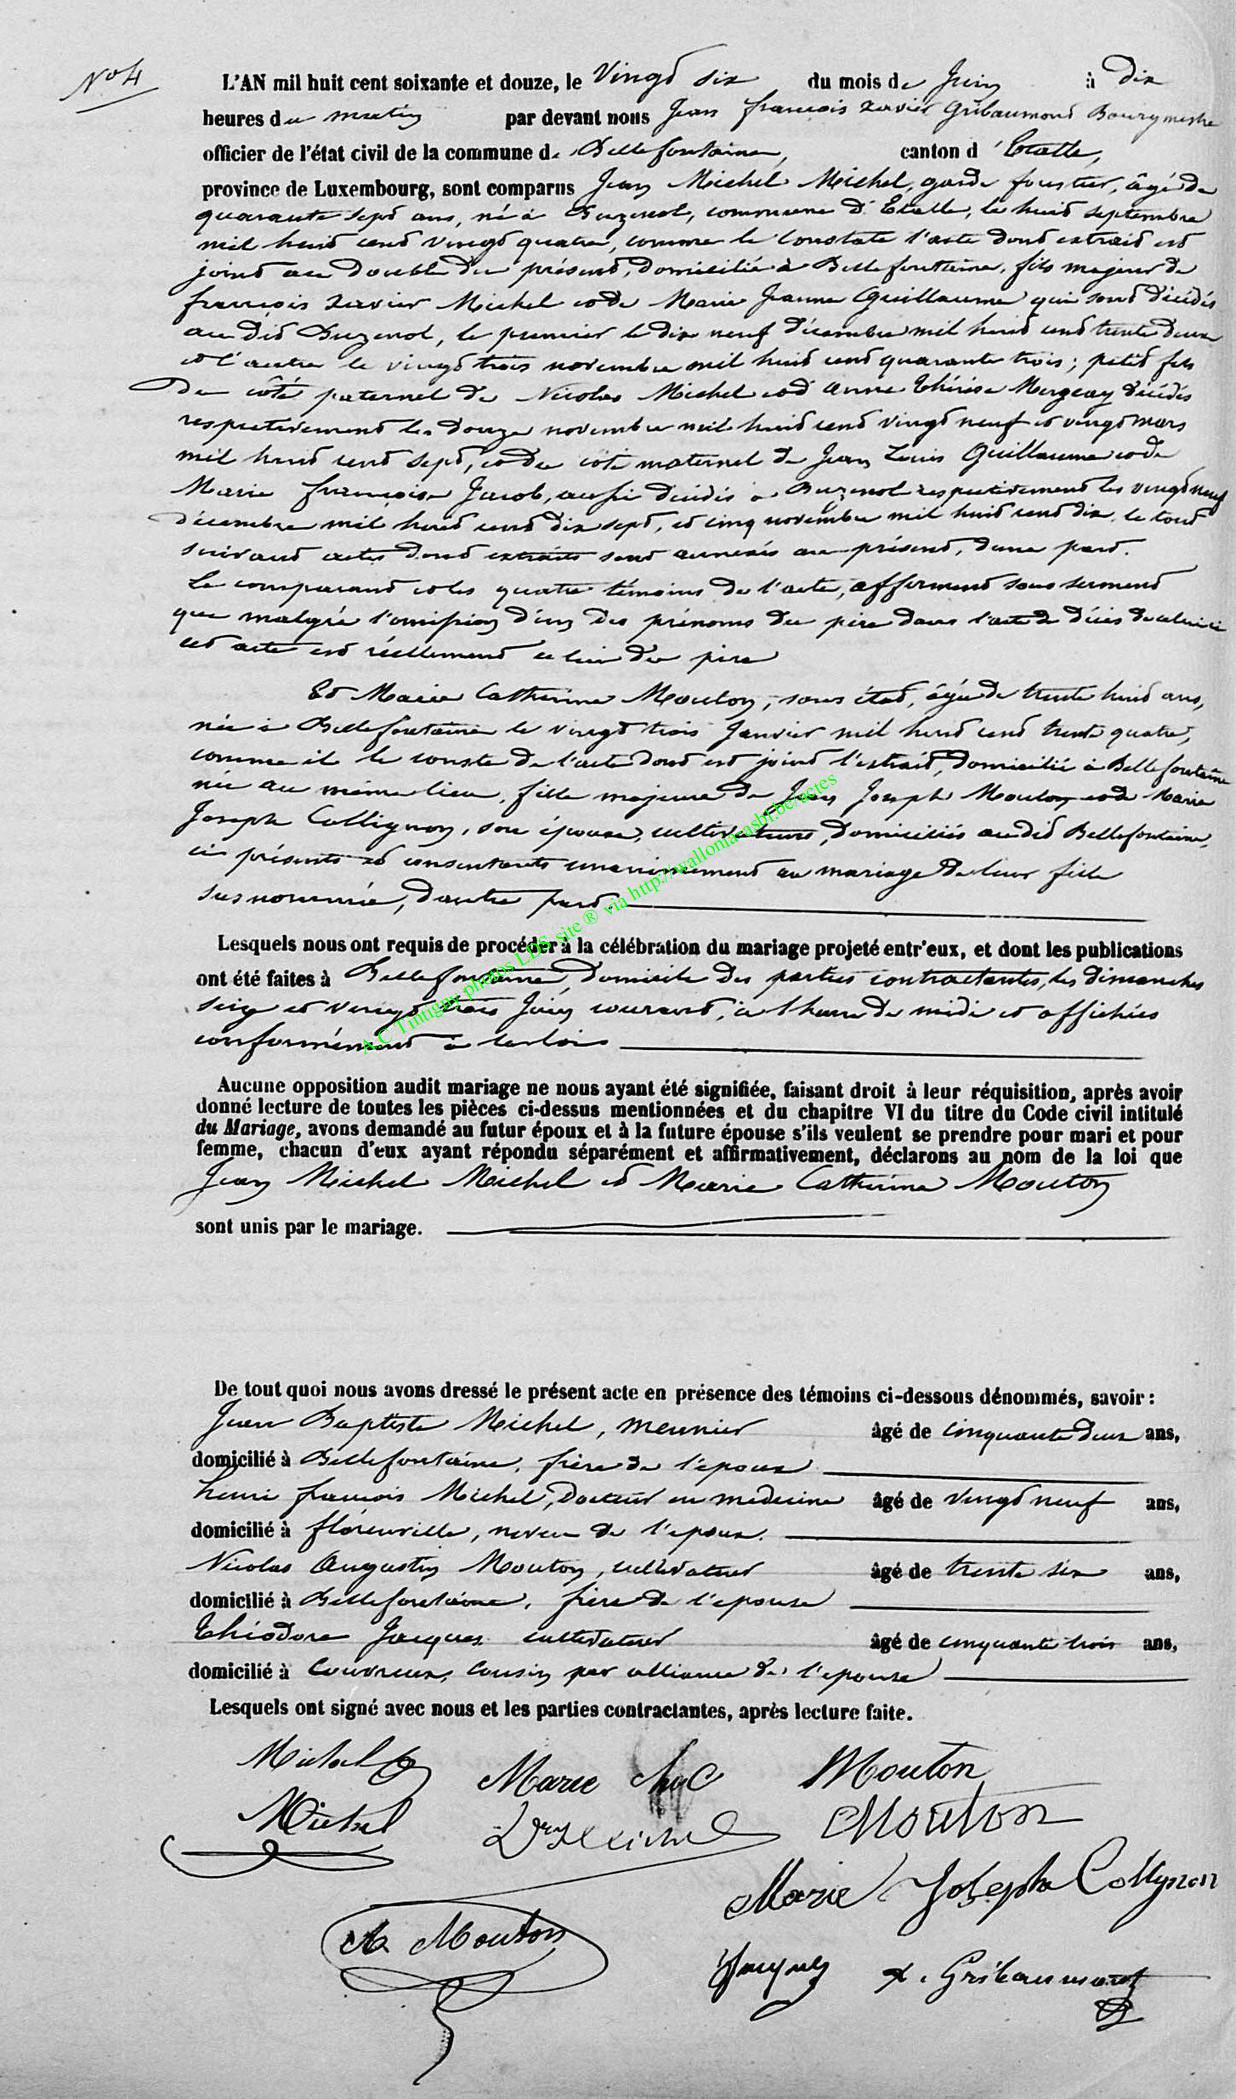 N° 4
L'AN mil huit cent soixante et douze, le vingt six du mois de Juin à dix
heures du matin par devant nous Jean françois xavier Gribaumont Bourgmestre
officier de l'état civil de la commune de Bellefontaine, canton d'Etalle,
province de Luxembourg, sont comparus Jean Michel Michel, garde forestier, âgé de
quarante sept ans, né à Buzenol, commune d'Etalle, le huit septembre
mil huit cent vingt quatre, comme le constate l'acte dont extrait est
joint au double du présent, domicilié à Bellefontaine, fils majeur de
françois xavier Michel et de Marie Jeanne Guillaume qui sont décédés
au dit Buzenol, le premier le dix neuf décembre mil huit cent trente deux
et l'autre le vingt trois novembre mil huit cent quarante trois; petit fils
du côté paternel de Nicolas Michel et d'anne thérèse Mergeay décédés
respectivement les douze novembre mil huit cent vingt neuf et vingt mars
mil huit cent sept, et du côté maternel de Jean Louis Guillaume et de
Marie françoise Jacob, aussi décédés à Buzenol respectivement les vingt neuf
décembre mil huit cent dix sept, et cinq novembre mil huit cent dix, le tout
suivant actes dont extraits sont annexés au présent, d'une part.
Le comparant et les quatre témoins de l'acte, afferment sous serment
que malgré l'omission d'un des prénoms du père dans l'acte de décès de celui ci
cet acte est réellement celui du père
Et Marie Catherine Mouton, sans état, âgée de trente huit ans,
née à Bellefontaine le vingt trois Janvier mil huit cent trente quatre,
comme il le conste de l'acte dont est joint l'extrait, domiciliée à Bellefontaine
née au même lieu, fille majeure de Jean Joseph Mouton et de Marie
Joseph Collignon, son épouse, cultivateurs, domiciliés au dit Bellefontaine,
ci présents et consentants unanimement au mariage de leur fille
susnommée, d'autre part.
Lesquels nous ont requis de procéder à la célébration du mariage projeté entr'eux, et dont les publications
ont été faites à Bellefontaine, domicile des parties contractantes, les dimanches
seize et vingt trois Juin courant, à l'heure de midi et affichées
conformément à les lois
Aucune opposition audit mariage ne nous ayant été signifiée, faisant droit à leur réquisition, après avoir
donné lecture de toutes les pièces ci-dessus mentionnées et du chapitre VI du titre du Code civil intitulé
du Mariage, avons demandé au futur époux et à la future épouse s'ils veulent se prendre pour mari et pour
femme, chacun d'eux ayant répondu séparément et affirmativement, déclarons au nom de la loi que
Jean Michel Michel et Marie Catherine Mouton
sont unis par le mariage.
De tout quoi nous avons dressé le présent acte en présence des témoins ci-dessous dénommés, savoir :
Jean Baptiste Michel, meunier âgé de cinquante deux ans,
domicilié à Bellefontaine, frère de l'époux
henri françois Michel, Docteur en medecine âgé de vingt neuf ans,
domicilié à florenville, neveu de l'époux.
Nicolas Augustin Mouton, cultivateur âgé de trente six ans,
domicilié à Bellefontaine, frère de l'épouse
théodore Jacques cultivateur âgé de cinquante trois ans,
domicilié à Couvreux, cousin par alliance de l'épouse
Lesquels ont signé avec nous et les parties contractantes, après lecture faite.
Michel Marie Mouton
Michel Dr Michel Mouton
Marie Joseph Collignon
A. Mouton
Jacques x. Gribaumont
A.C Tintigny photos LDS, site ® via http://wallonia-asbl.be/actes